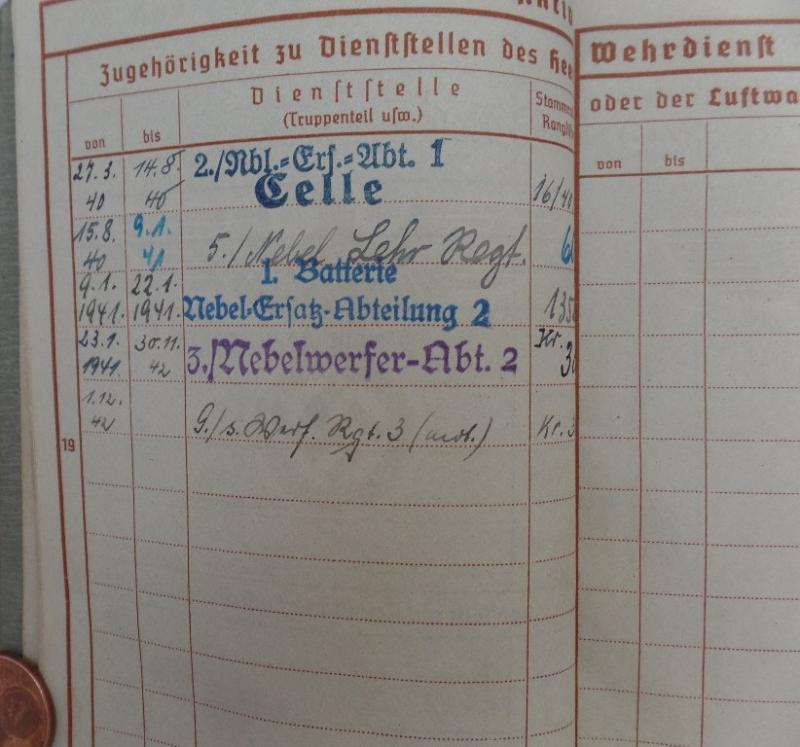 Zugehörigkeit zu Dienststellen des Hee
von
bis
Dienststelle
(Truppenteil usw.)
Stamm
Rangl
27.3.
40
14.8.
40
2./Nbl.=Ers.=Abt. 1
Celle
16/40
15.8.
40
9.1.
41
5./Nebel Lehr Regt.
6
9.1.
1941.
22.1.
1941.
1. Batterie
Nebel-Ersatz-Abteilung 2
135
23.1.
1941
30.11.
42
3./Nebelwerfer-Abt. 2
Kr.
30
1.12.
42
9./s. Werf. Rgt. 3 (mot.)
Kr. 3
19
Wehrdienst
oder der Luftwa
von
bis